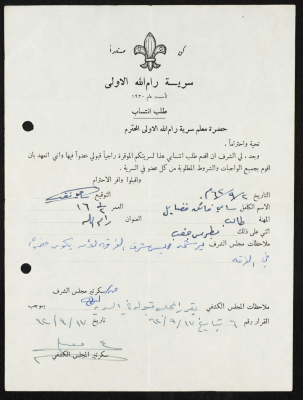 كن مستعداً
سرية رام الله الاولى
تأسست عام ١٩٣٠
طلب انتساب
حضرة معلم سرية رام الله الاولى المحترم
تحية واحتراماً ،
وبعد ، لي الشرف ان اقدم طلب انتسابي هذا لسريتكم الموقرة راجياً قبولي عضواً فيها واني اتعهد بان
اقوم بجميع الواجبات والشروط المطلوبة من كل عضو في السرية .
واقبلوا وافر الاحترام
التاريخ ٢/٩/٦٢ التوقيع
الاسم الكامل العمر ١٦
المهنة طالب العنوان رام الله
اثنى على ذلك
ملاحظات مجلس الشرف
في الفرقه
سكرتير مجلس الشرف
ملاحظات المجلس الكشفي يقرر المجلس قبوله في السرية بموجب
القرار رقم ٦ تاريخ ١٧/٩/٦٢ تاريخ ١٧/٩/٦٢
سكرتير المجلس الكشفي